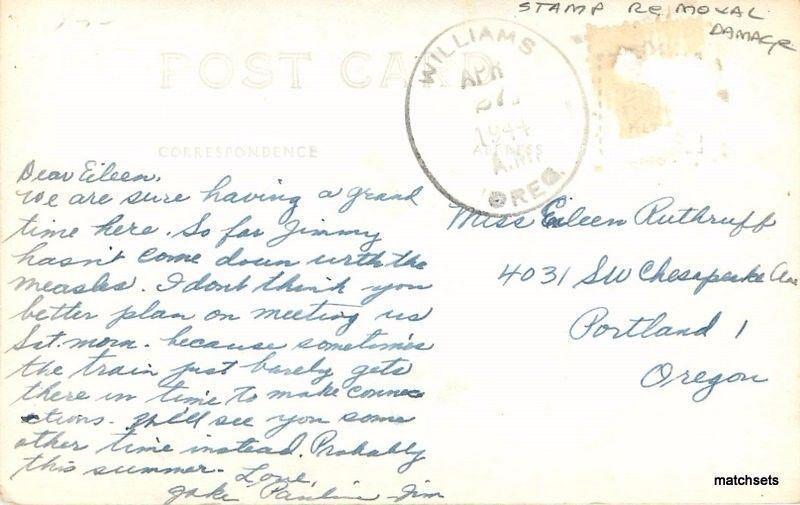 STAMP REMOVAL
DAMAGE
POST CARD
WILLIAMS
APR
1944
A.M.
OREG.
CORRESPONDENCE
ADDRESS
Dear Eileen,
We are sure having a grand
time here. So far Jimmy
hasn't come down with the
measles. I dont think you
better plan on meeting us
Sat. morn. because sometimes
the train just barely gets
there in time to make conne
ctions. We'll see you some
other time instead. Probably
this summer.
Love,
Jake Pauline Jim
Miss Eileen Ruthruff
4031 SW Chesapeake Ave
Portland 1
Oregon
matchsets